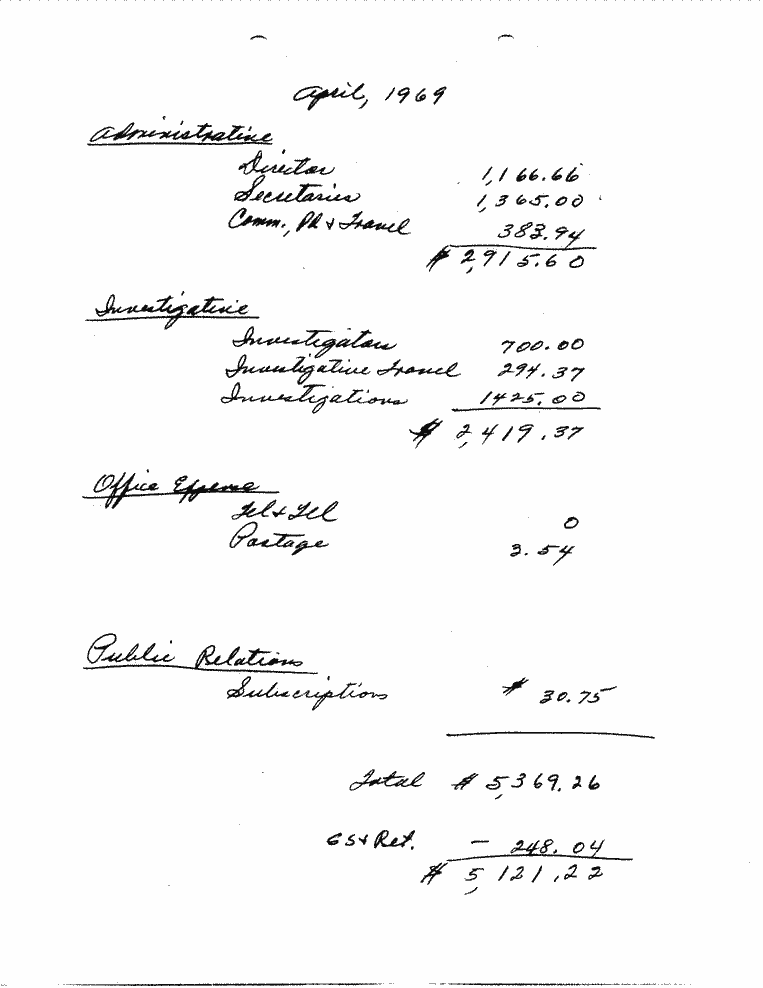 April, 1969
Administrative
Director 1,166.66
Secretaries 1,365.00
Comm., Pd & Travel 383.94
$ 2,915.60
Investigative
Investigators 700.00
Investigative Travel 294.37
Investigations 1425.00
$ 2,419.37
Office Expense
Tel & Tel 0
Postage 3.54
Public Relations
Subscriptions $ 30.75
Total $ 5,369.26
GS & Ret. - 248.04
$ 5,121.22